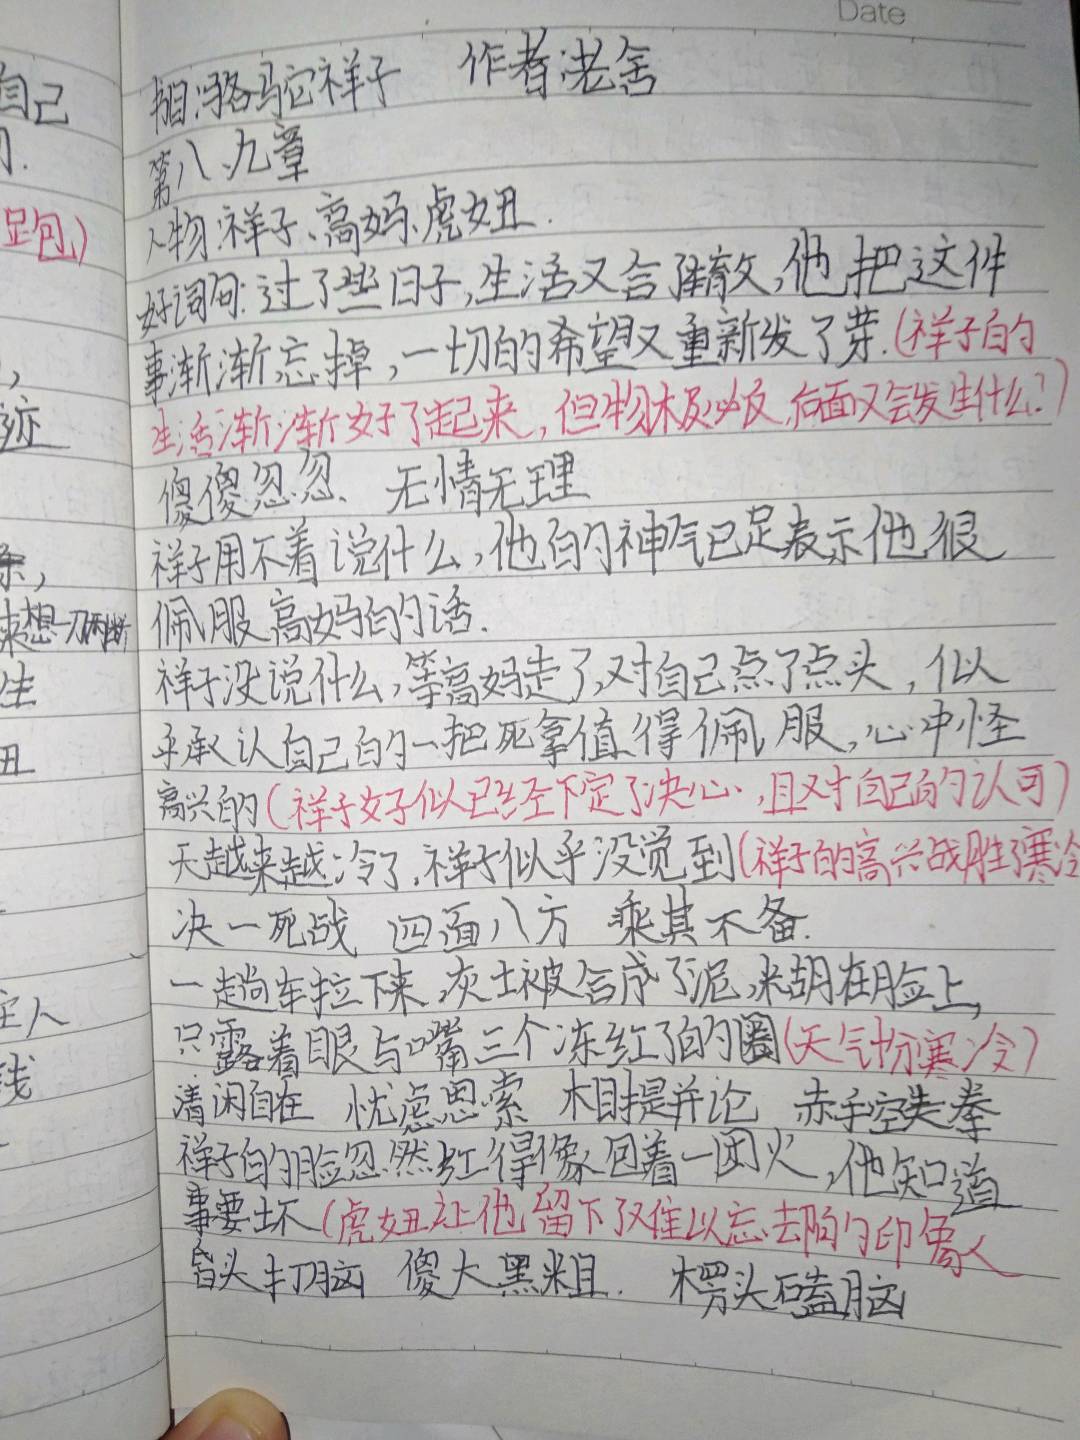 Date
书目:骆驼祥子 作者:老舍
第八、九章
人物:祥子、高妈、虎妞.
好词句:过了些日子,生活又合了辙,他把这件
事渐渐忘掉,一切的希望又重新发了芽.(祥子的
生活渐渐好了起来,但物极必反,后面又会发生什么?)
傻傻忽忽、无情无理
祥子用不着说什么,他的神气已足表示他很
佩服高妈的话.
祥子没说什么,等高妈走了,对自己点了点头,似
乎承认自己的一把死拿值得佩服,心中怪
高兴的(祥子好似已经下定了决心,且对自己的认可)
天越来越冷了,祥子似乎没觉到(祥子的高兴战胜了寒冷
决一死战 四面八方 乘其不备.
一趟车拉下来,灰土被合成了泥,糊在脸上,
只露着眼与嘴三个冻红了的圈(天气十分寒冷)
清闲自在 忧虑思索 相提并论 赤手空拳
祥子的脸忽然红得像包着一团火,他知道
事要坏(虎妞让他留下了难以忘去的印象
昏头打脑 傻大黑粗. 楞头磕脑
自己
足包)
迹
来想一刀两断
生
丑
主人
钱